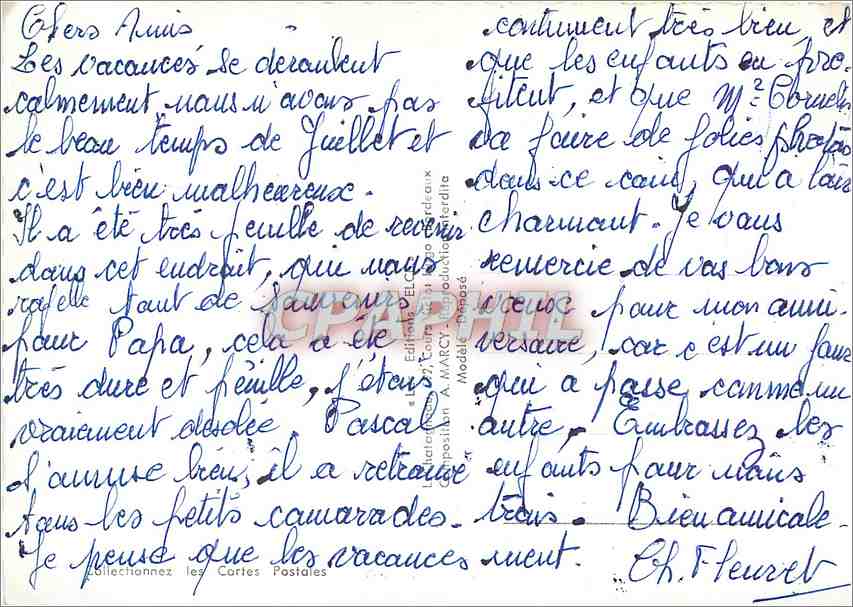 Chers Amis
Les vacances se déroulent
calmement nous n'avons pas
le beau temps de Juillet et
c'est bien malheureux.
Il a été très penible de revenir
dans cet endroit, qui nous
rapelle tant de souvenirs
pour Papa, cela a été
très dure et pénible, j'étais
vraiement désolée. Pascal
s'amuse bien, il a retrouvé
tous les petits camarades.
Je pense que les vacances
continuent très bien, et
que les enfants en pro-
fitent, et que Mr Cornelis
va faire de jolies photos
dans ce coin, qui a l'air
charmant. Je vous
remercie de vos bons
voeux pour mon anni-
versaire, car c'est un jour
qui a passé comme un
autre. Embrassez les
enfants pour nous
trois. Bien amicale-
ment. Ch. Fleuret
Collectionnez les Cartes Postales
Editions "ELCE"
Composition A. MARCY - Reproduction interdite
Modèle Déposé
CPAPHIL